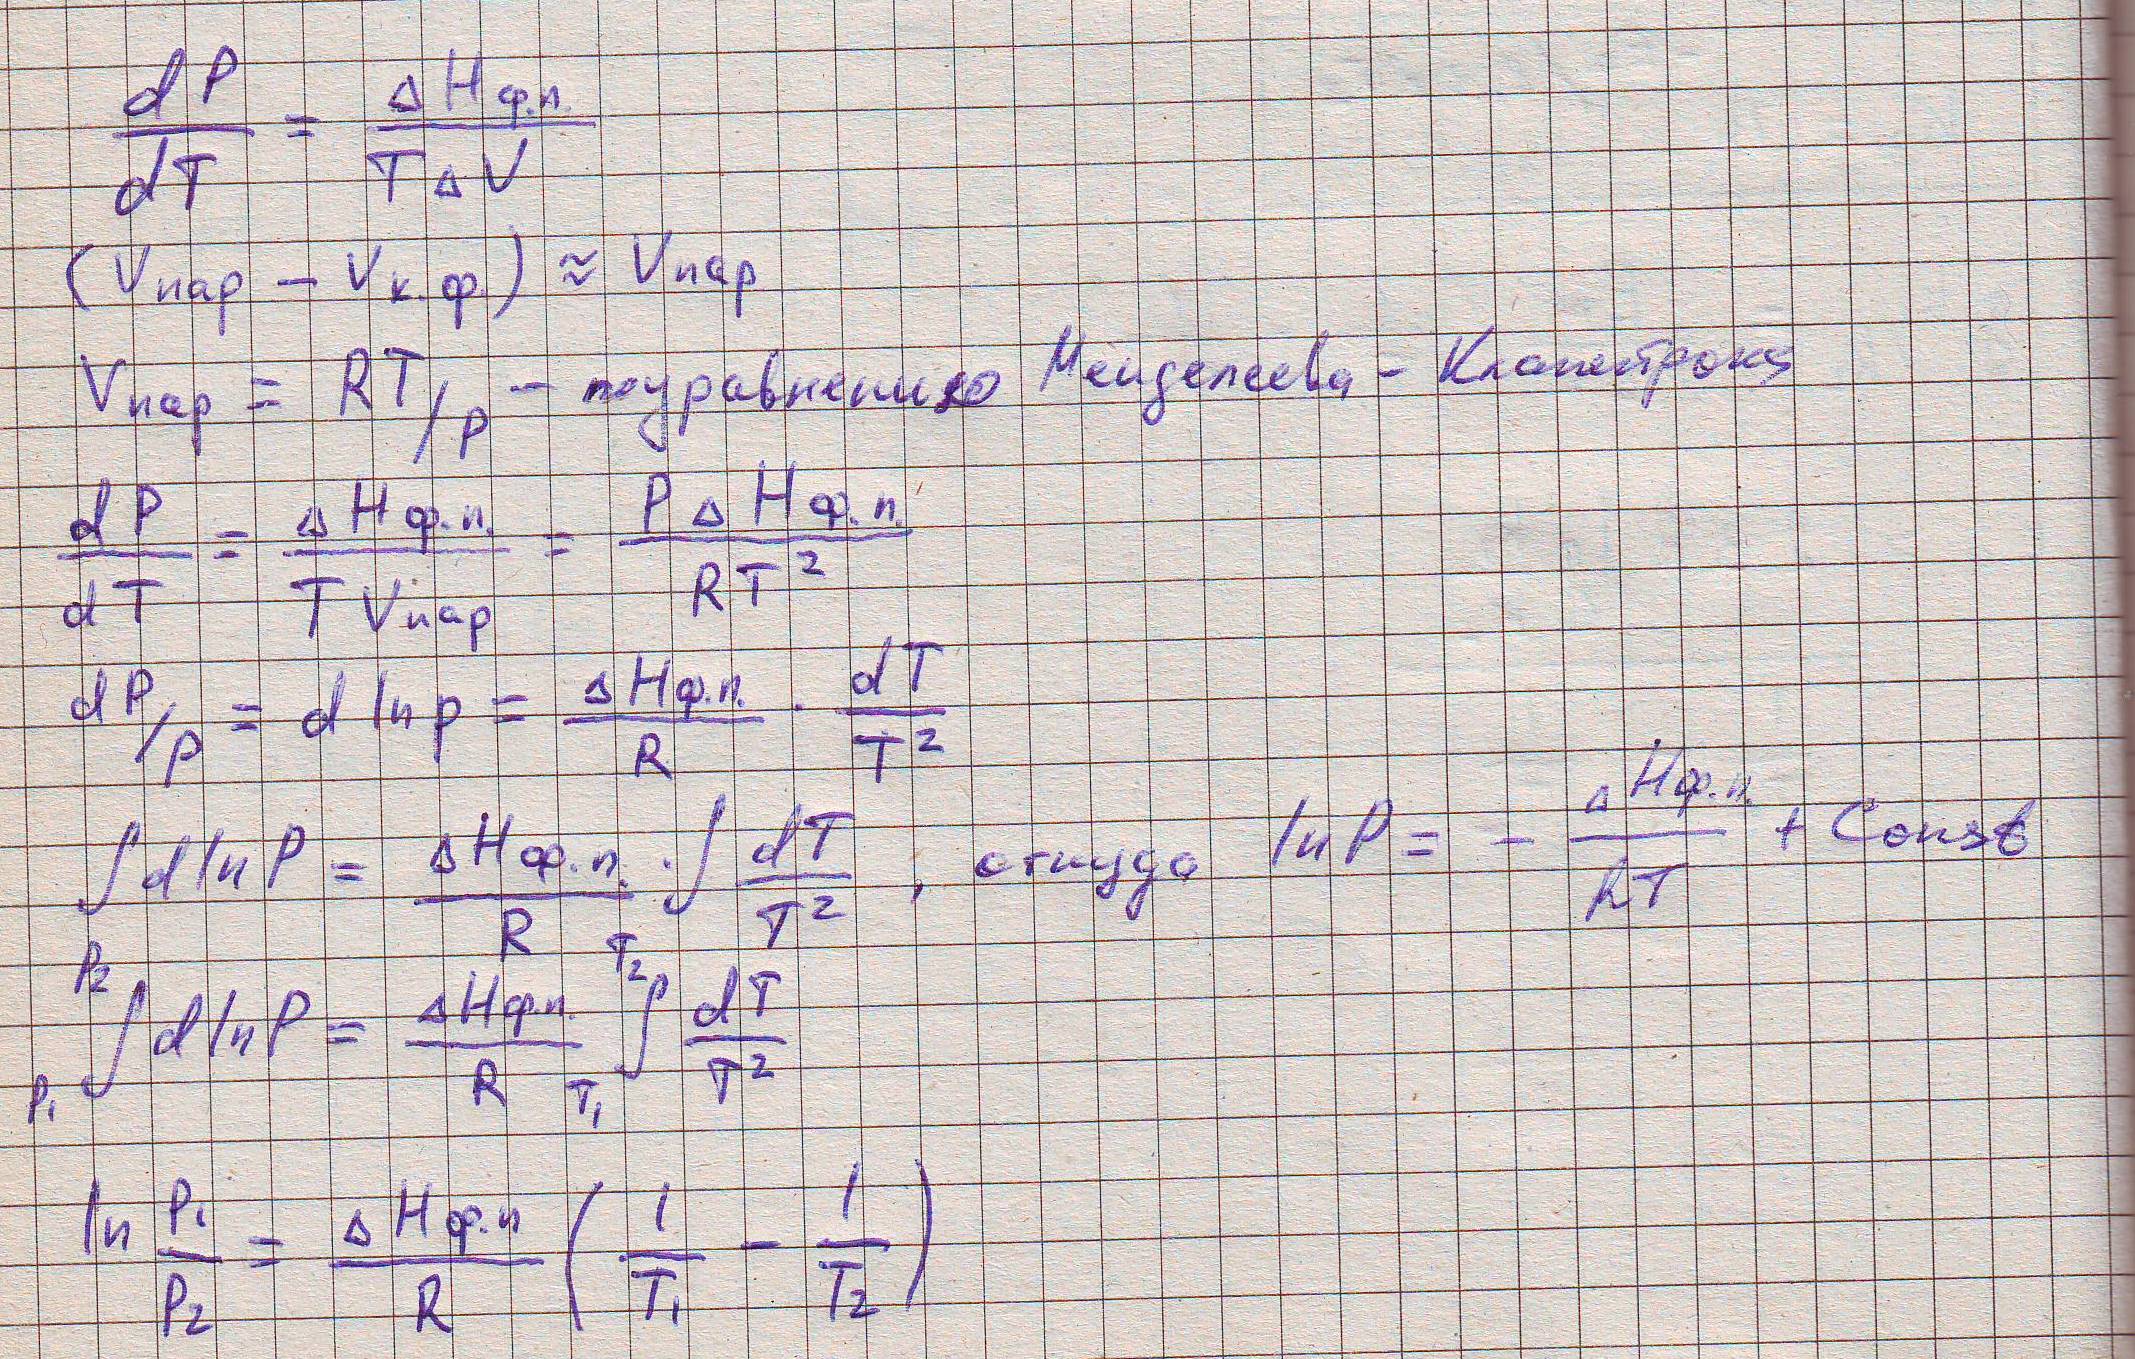 dP/dT = ΔHф.п./TΔV
(Vпар – Vк.ф.) ≈ Vпар
Vпар = RT/P – по уравнению Менделеева – Клапейрона
dP/dT = ΔHф.п./TVпар = PΔHф.п./RT²
dP/P = d ln p = ΔHф.п./R · dT/T²
∫d ln P = ΔHф.п./R · ∫dT/T², откуда ln P = – ΔHф.п./RT + Const
P₁∫P₂ d ln P = ΔHф.п./R T₁∫T₂ dT/T²
ln P₁/P₂ = ΔHф.п/R (1/T₁ – 1/T₂)